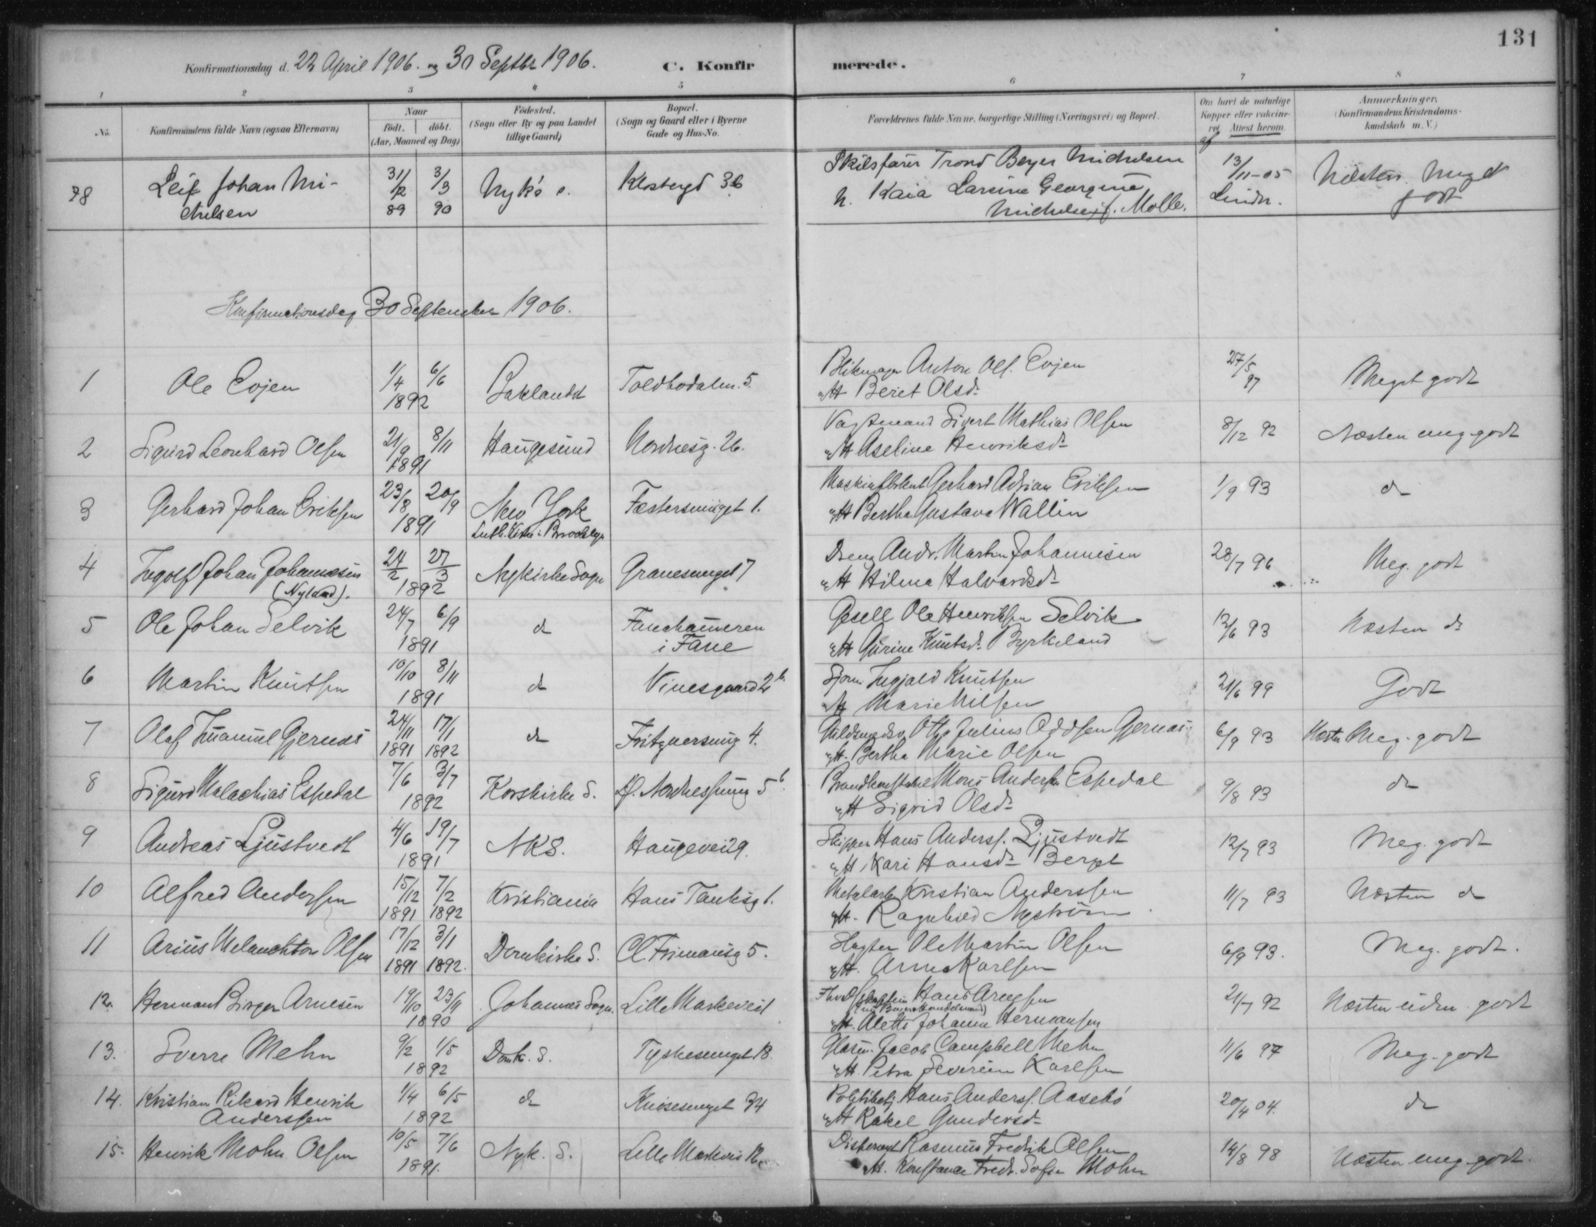 131
Konfirmationsdag d. 22 April 1906. og 30 Septbr 1906.
C. Konfirmerede.
1 2 3 4 5 6 7 8
No.
Konfirmandens fulde Navn (ogsaa Efternavn)
Naar
født. døbt.
(Aar, Maaned og Dag)
Fødested.
(Sogn eller By og paa Landet
tillige Gaard)
Bopæl.
(Sogn og Gaard eller i Byerne
Gade og Hus-No.
Forældrenes fulde Navne, borgerlige Stilling (Næringsvei) og Bopæl.
Om havt de naturlige
Kopper eller vaksineret
Attest herom.
Anmærkninger.
(Konfirmandens Kristendoms-
kundskab m. V.)
78 Leif Johan Mi-
chelsen
31/12 89 3/3 90
Nyk's.
Klostergd 36
Skibsfører Trond Beyer Michelsen
h. Kaia Larsine Georgine
Michelsen f. Møller.
13/11-05
Næsten Meget
godt
Konfirmationsdag 30 September 1906.
1 Ole Evjen 1/4 6/6 1892 Baklandet Toldbodalm. 5.
Blikmager Anton Olf. Evjen
Beret Olsd.
27/5 97 Meget godt
2 Sigurd Leonhard Olsen 21/9 8/11 1891 Haugesund Nordnesg. 26.
Vagtmand Sivert Mathias Olsen
Aseline Henriksdt
8/12 92 Næsten meg. godt
3 Gerhard Johan Eriksen 23/8 20/9 1891 New York
Luth. Kirke i Brooklyn
Fæstersmuget 1.
Gerhard Adrian Eriksen
Bertha Gustava Wallin
1/9 93 do
4 Ingolf Johan Johannesen
24/2 27/3 1892 Nykirke Sogn Granesmuget 7
Dreng Andr. Martin Johannesen
Hilma Halvardsdt
28/7 96 Meg. godt
5 Ole Johan Selvik 24/7 6/9 1891 do
i Fane
Gesell Ole Henriksen Selvik
Gurine Knutsdt Byrkeland
12/6 93 Næsten do
6 Martin Knutsen 10/10 8/11 1891 do Vinesgaard 2 b
Ingjald Knutsen
Marie Nilsen
21/6 99 Godt
7 Olaf Imanuel Gjernæs 24/11 1891 17/1 1892 do Fritznersmug 4.
Otto Julius Oddsen Gjernæs
Bertha Marie Olsen
6/9 93 Næsten Meg. godt
8 Sigurd Malachias Espedal 7/6 3/7 1892 Korskirke S. Nordnessmug 5 b
Mons Andersen Espedal
Sigrid Olsdt
9/8 93 do
9 Andreas Ljustvedt 4/6 19/7 1891 NKS. Haugevei 29.
Skipper Hans Anders. Ljustvedt
Kari Hansdt Berge
12/7 93 Meg. godt
10 Alfred Andersen 15/12 1891 7/2 1892 Kristiania Hans Tanksg 1.
Kristian Anderssen
Ragnhild Nystrøm
11/7 93 Næsten do
11 Arius Melanchton Olsen 17/12 1891 3/1 1892. Domkirke S. Cl. Frimansg 5.
Ole Martin Olsen
Anna Karlsen
6/9 93. Meg. godt.
12. Herman Birger Arnesen 19/10 23/11 1890 Johannes Sogn. Lille Markeveil
Hans Arnesen
Alette Johanna Hermansen
21/7 92 Næsten godt
13. Sverre Mehn 9/2 1/5 1892 Domk. S. Tyskesmuget 18.
Jacob Campbell Mehn
Petra Severine Karlsen
11/6 97 Meg. godt
14. Kristian Rikard Henrik
Anderssen
1/4 6/5 1892 do Knøsesmuget 34
Politibetj Hans Anders. Aasebø
Rakel Gundersdt
20/4 04. do
15. Henrik Mohn Olsen 10/5 7/6 1891. Nyk. S. Lille Markevei 12
Rasmus Fredrik Olsen
Konstance Fredr. Sofie Mohn
14/8 98 Næsten meg. godt.